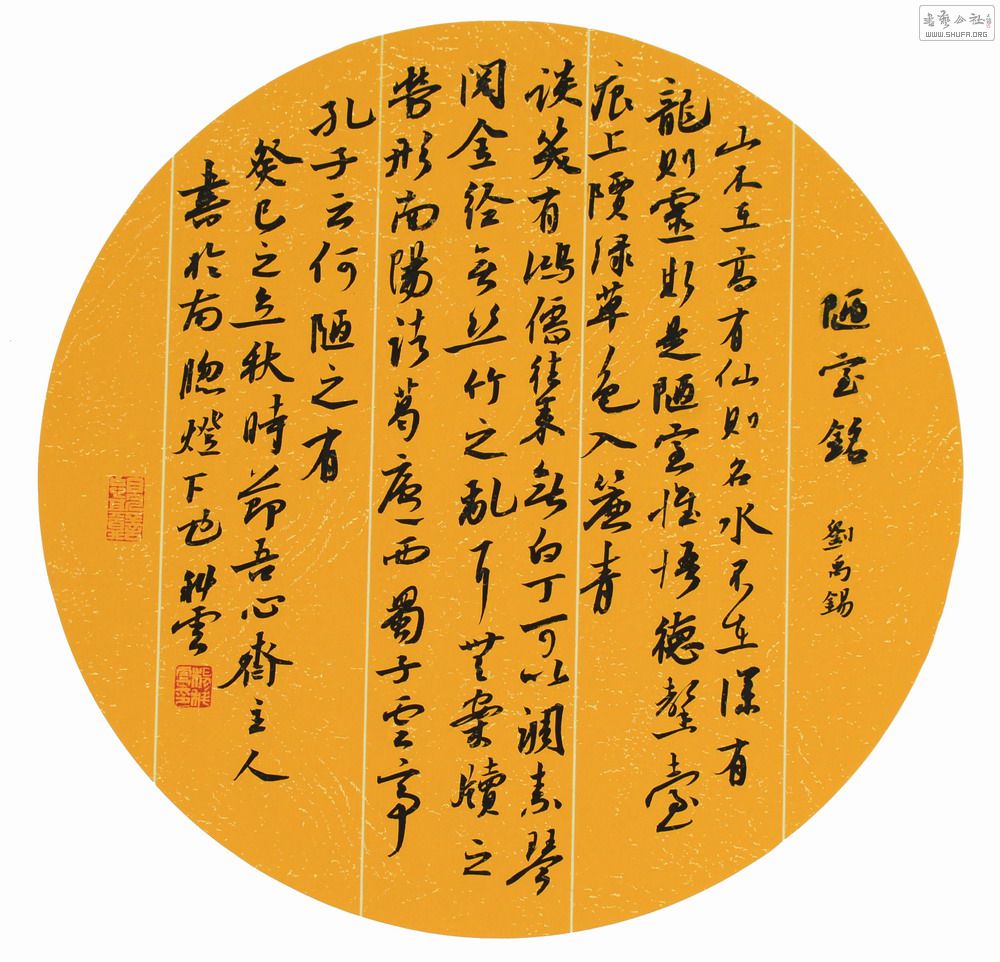 陋室銘 劉禹錫
山不在高有仙則名水不在深有
龍則靈斯是陋室惟悟德馨臺
痕上階綠草色入簾青
談笑有鴻儒往來無白丁可以調素琴
閱金經無絲竹之亂耳無案牘之
勞形南陽諸葛廬西蜀子雲亭
孔子云何陋之有
癸巳之立秋時節吾心齋主人
書於南牕燈下也 雲
書藝公社
WWW.SHUFA.ORG